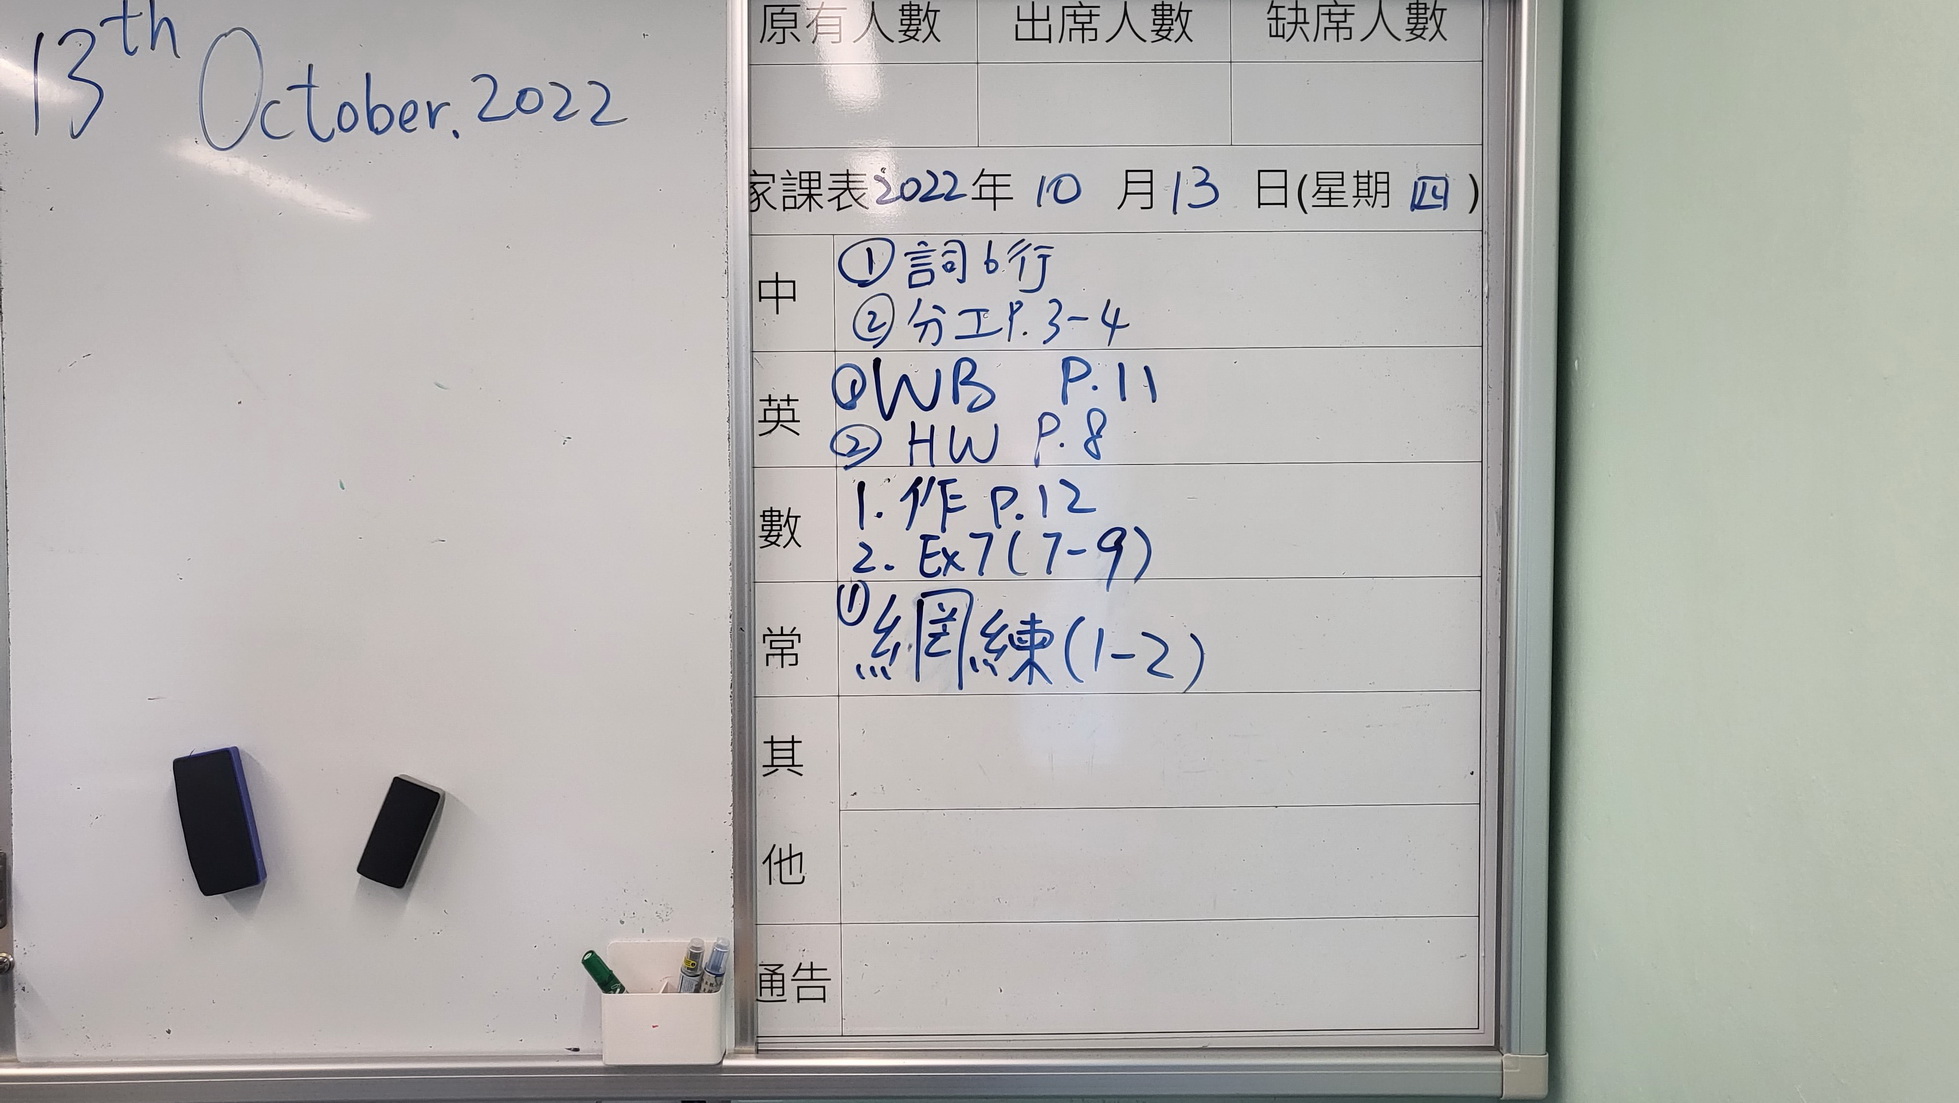 13th October. 2022
原有人數 出席人數 缺席人數
家課表 2022年 10 月 13 日(星期 四)
中 ① 詞6行
② 分工P.3-4
英 ① WB P.11
② HW P.8
數 1. 作 P.12
2. Ex7(7-9)
常 ① 網練(1-2)
其
他
通告